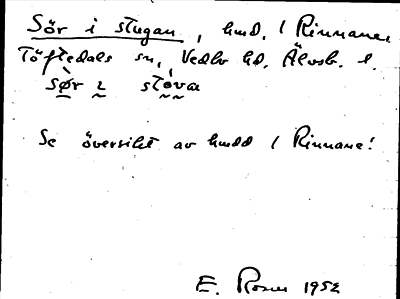 Sör i stugan, hmd. / Rinnane,
Töftedals sn, Vedbo hd, Älvsb. l.
sør i stòva
Se översikt av hmdd / Rinnane!
E. Rosén 1952